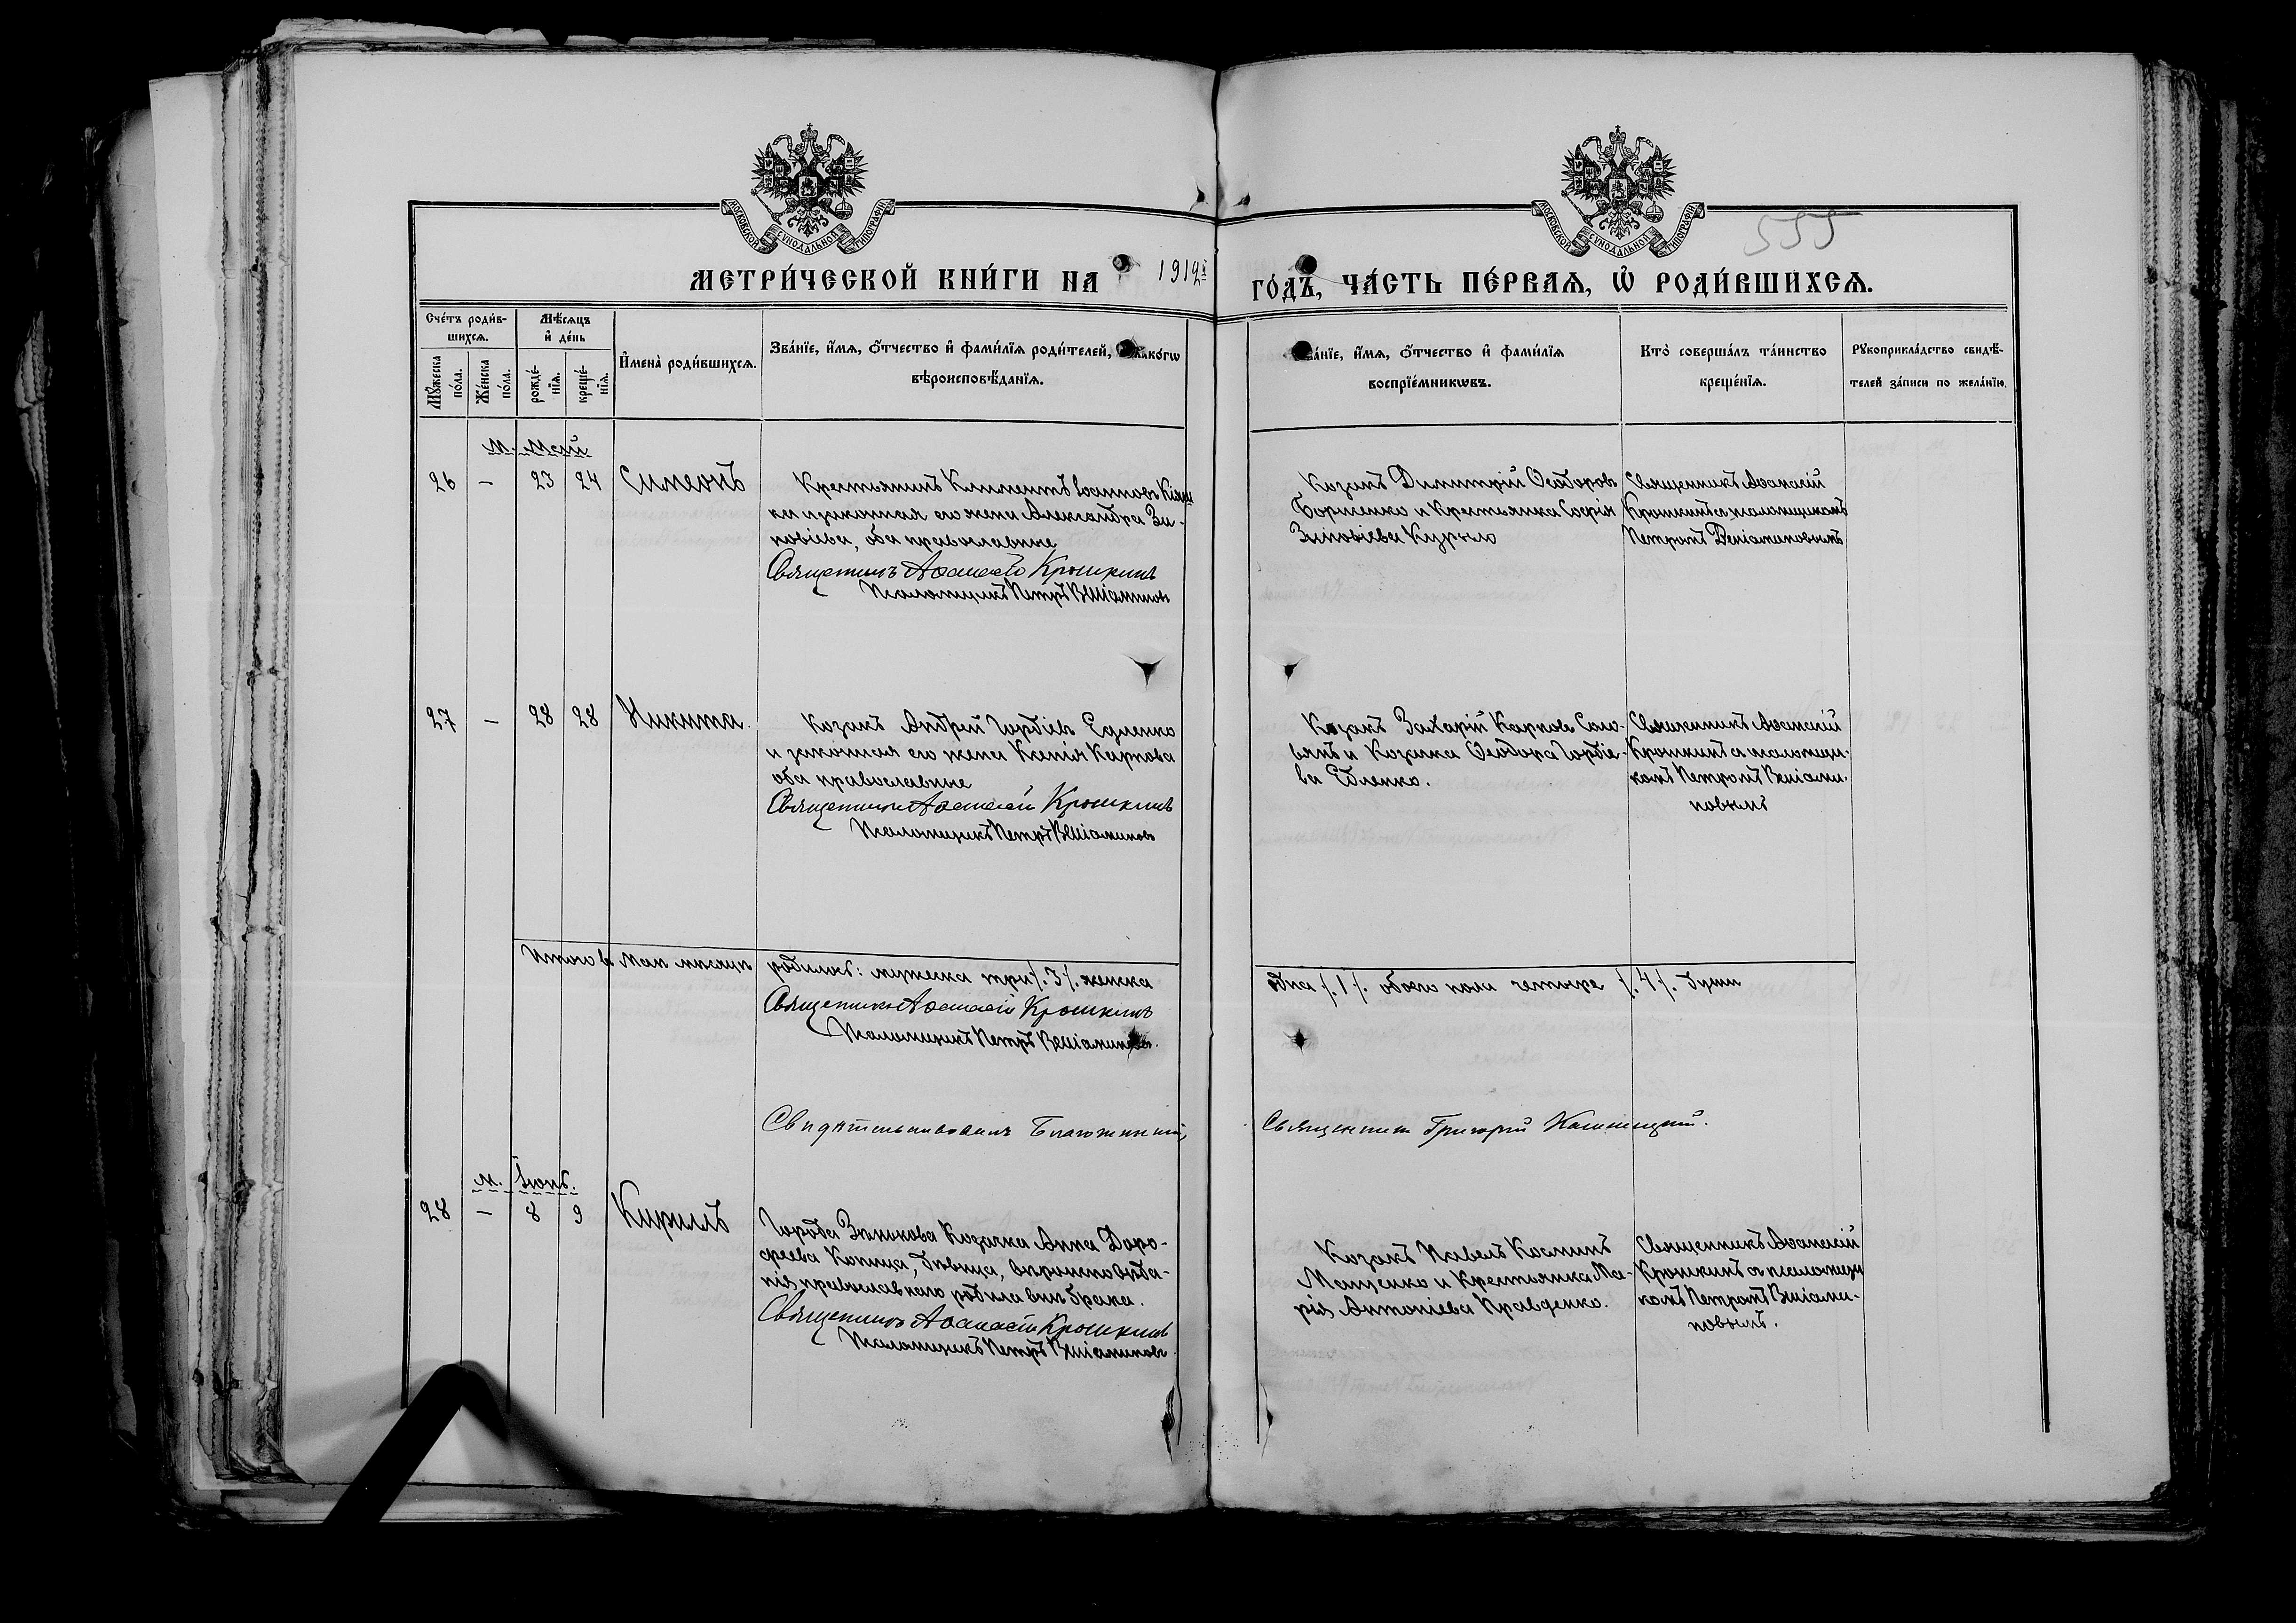 МОСКОВСКОЙ СУНОДАЛЬНОЙ ТИПОГРАФІИ
МОСКОВСКОЙ СУНОДАЛЬНОЙ ТИПОГРАФІИ
555
МЕТРИ́ЧЕСКОЙ КНИ́ГИ НА 1912й ГО́ДЪ, ЧА́СТЬ ПЕ́РВАѦ, Ѡ҆ РОДИ́ВШИХСѦ.
Сче́тъ роди́в-
шихсѧ.
Мѣ́сѧцъ
и҆ де́нь
Мꙋ́жеска
по́ла.
Же́нска
по́ла.
рожде́-
нїѧ.
креще́-
нїѧ.
И҆мена̀ роди́вшихсѧ.
Зва́нїе, и҆́мѧ, ѻ҆́тчество и҆ фами́лїѧ роди́телей,
вѣроисповѣ́данїѧ.
Зва́нїе, и҆́мѧ, ѻ҆́тчество и҆ фами́лїѧ
воспрїе́мникѡвъ.
Кто̀ соверша́лъ та́инство
креще́нїѧ.
Рꙋкоприкла́дство свидѣ́-
телей за́писи по жела́нїю.
м. Май
26 — 23 24 Симеонъ
Крестьянинъ Климентъ Іоанновъ
ка и законная его жена Александра Зи-
новіева, оба православные
Священникъ Аѳанасій Крошкинъ
Псаломщикъ Петръ Веніаминовъ
Козакъ Димитрій Ѳеодоровъ
Борченко и Крестьянка Софія
Зиновіева Курыло
Священникъ Аѳанасій
Крошкинъ съ псаломщикомъ
Петромъ Веніаминовымъ
27 — 28 28 Никита.
Козакъ Андрей Гордіевъ Едленко
и законная его жена Ксенія Карпова
оба православные
Священникъ Аѳанасій Крошкинъ
Псаломщикъ Петръ Веніаминовъ
Козакъ Захарій Карповъ Соло-
вянъ и Козачка Ѳеодора Гордіе-
ва Едленко.
Священникъ Аѳанасій
Крошкинъ съ псаломщи-
комъ Петромъ Веніами-
новымъ
Итого въ Маѣ мѣсяцѣ родилось: мужеска три /.3/. женска одна /.1/. обоего пола четыре /.4/. души
Священникъ Аѳанасій Крошкинъ
Псаломщикъ Петръ Веніаминовъ.
Свидѣтельствовалъ Благочинный, Священникъ Григорій
м. Іюнь.
28 — 8 9 Кирилъ
Города Зѣнькова Козачка Анна Доро-
феева Копица, дѣвица, вѣроисповѣда-
нія православнаго родила внѣ брака.
Священникъ Аѳанасій Крошкинъ
Псаломщикъ Петръ Веніаминовъ.
Козакъ Павелъ Косминъ
Маценко и Крестьянка Ма-
рія Антоніева Правденко.
Священникъ Аѳанасій
Крошкинъ съ псаломщи
комъ Петромъ Веніами-
новымъ.